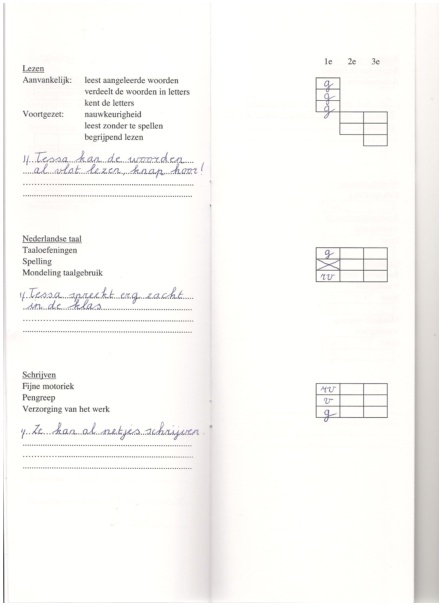 1e 2e 3e
Lezen
Aanvankelijk: leest aangeleerde woorden
verdeelt de woorden in letters
kent de letters
Voortgezet: nauwkeurigheid
leest zonder te spellen
begrijpend lezen
g
g
g
1) Tessa kan de woorden
al vlot lezen, knap hoor!
Nederlandse taal
Taaloefeningen g
Spelling
Mondeling taalgebruik rv
1) Tessa spreekt erg zacht
in de klas
Schrijven
Fijne motoriek rv
Pengreep v
Verzorging van het werk g
1) Ze kan al netjes schrijven